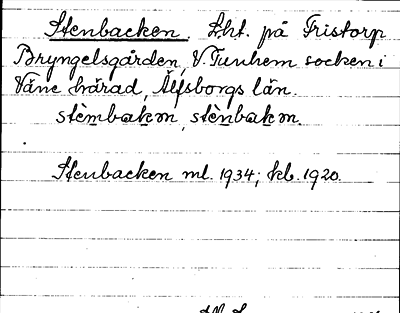 Stenbacken. Lht. på Fristorp
Bryngelsgården, V. Tunhem socken i
Väne härad, Älfsborgs län.
stèmbakm, stènbakm.
Stenbacken ml. 1934; kb. 1920.